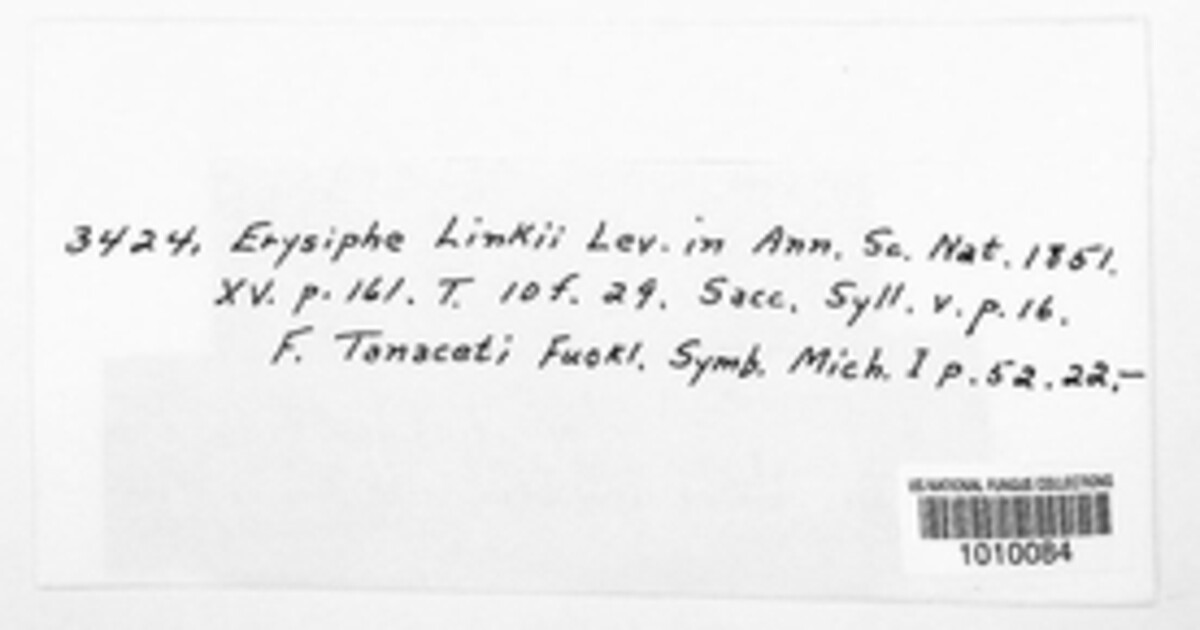 3424. Erysiphe Linkii Lev. in Ann. Sc. Nat. 1851.
XV. p. 161. T. 10 f. 29. Sacc. Syll. v. p. 16.
F. Tanaceti Fuckl. Symb. Mich. I p. 52. 22.—
US NATIONAL FUNGUS COLLECTIONS
1010084